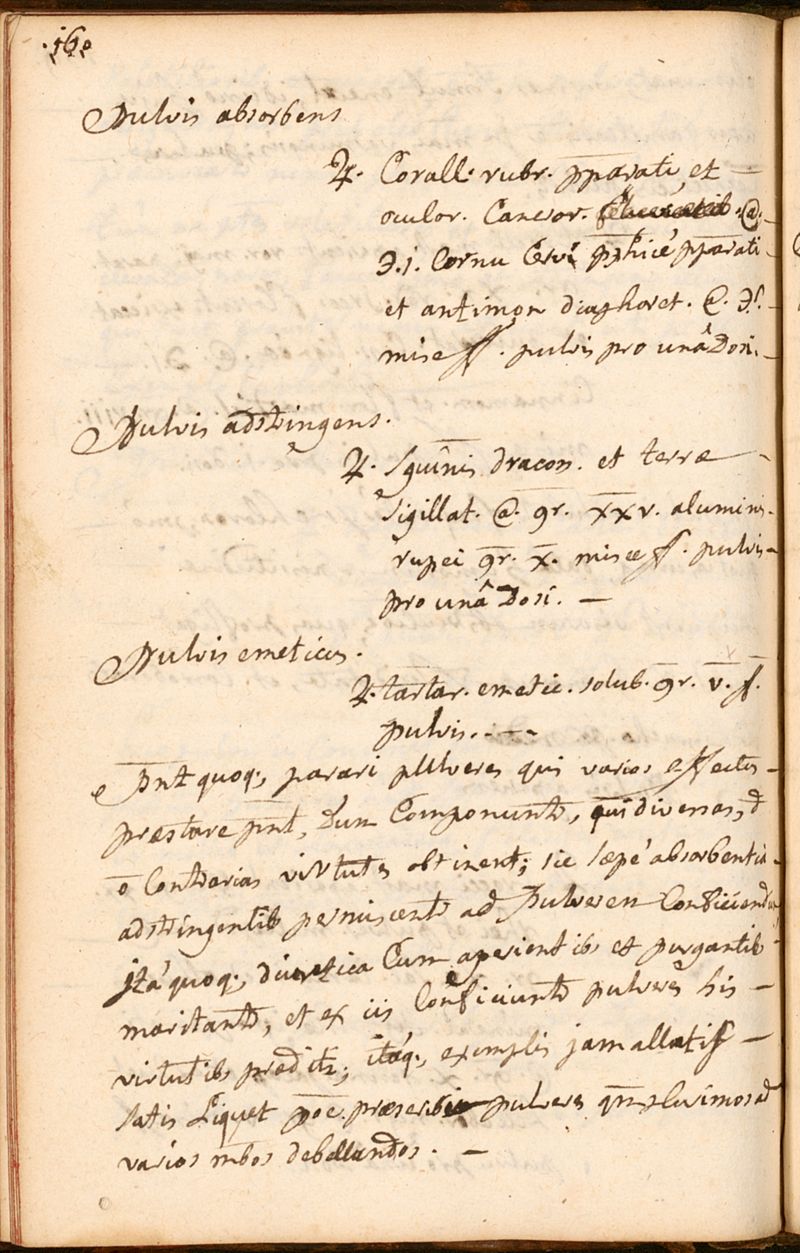 160
Pulvis absorbens
♃. Corall. rubr. pparati et
oculor. Cancror. @.
℈.j. Cornu Cervi pphicè pparati
et antimon diaphoret. @. ℈ß.
misce ff. pulvis pro unâ Dosi.
Pulvis adstringens.
♃. Sguinis dracon. et terræ
sigillat. @. gr. xxv. aluminis
rupei gr. x. misce ff. pulvis
pro unâ Dosi. —
Pulvis emeticus.
♃. tartar. emetic. solub. gr. v. ff.
pulvis. - - -
Pnt quoq; parari pulveres qui varios effectus
præstare pnt, dum Componunt, qui diversas, et
Contrarias virtutes obtinent; sic sæpè absorbentia
adstringentib permiscent ad Pulverem Conficiendum
Jtà quoq; diuretica Cum aperientibs et purgantib
maritant, et ex iis Conficiunt pulveres his —
virtutibs prædit; itaq; exemplis jam allatis —
satis Liquet poe præscribi pulveres qm plurimos ad
varios mbos debellandos. —